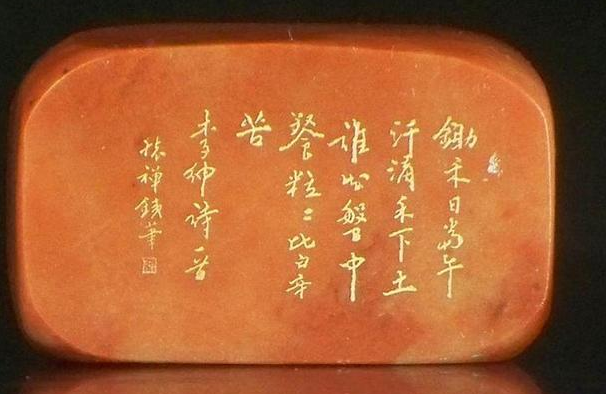 鋤禾日當午
汗滴禾下土
誰知盤中
餐粒々皆辛
苦
李紳詩一首
禪鐵筆